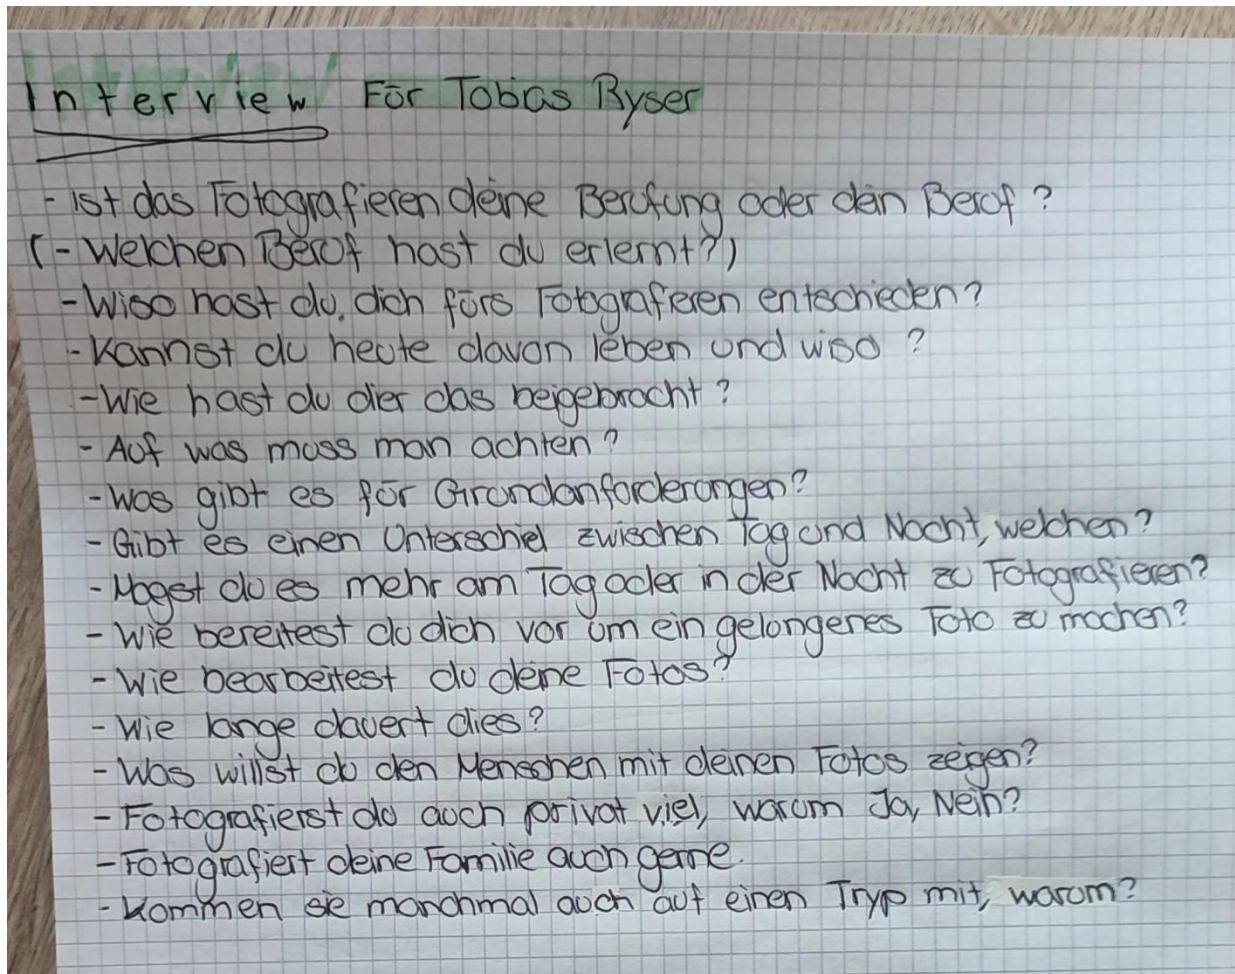 Interview Für Tobias Ryser
- Ist das Fotografieren deine Berufung oder dein Beruf?
(- Welchen Beruf hast du erlernt?)
- Wiso hast du, dich fürs Fotografieren entschieden?
- Kannst du heute davon leben und wiso?
- Wie hast du dier das beigebracht?
- Auf was muss man achten?
- Was gibt es für Grundanforderungen?
- Gibt es einen Unterschied zwischen Tag und Nacht, welchen?
- Magst du es mehr am Tag oder in der Nacht zu Fotografieren?
- Wie bereitest du dich vor um ein gelungenes Foto zu machen?
- Wie bearbeitest du deine Fotos?
- Wie lange dauert dies?
- Was willst du den Menschen mit deinen Fotos zeigen?
- Fotografierst du auch privat viel, warum Ja, Nein?
- Fotografiert deine Familie auch gerne.
- Kommen sie manchmal auch auf einen Tryp mit, warum?